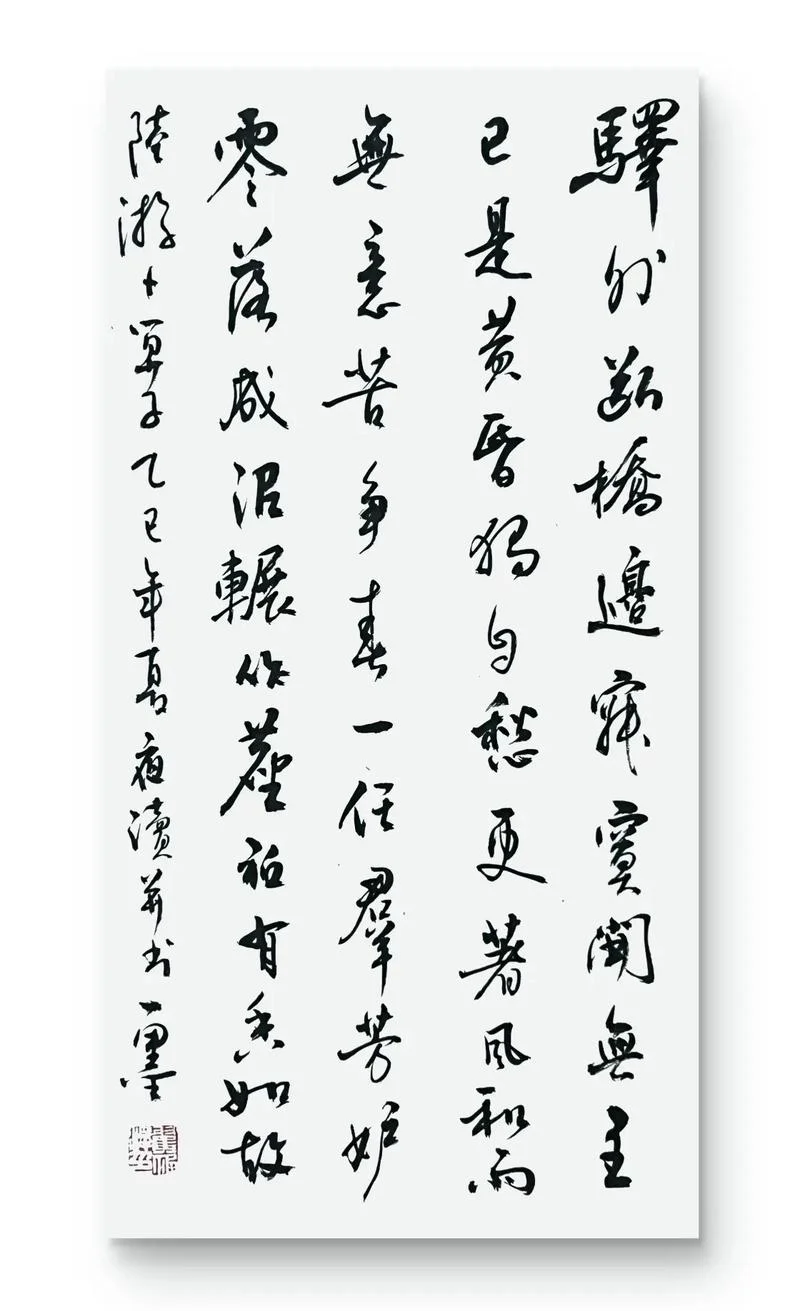 驛外斷橋邊寂寞開無主
已是黄昏獨自愁更著風和雨
無意苦争春一任羣芳妒
零落成泥輾作塵祗有香如故
陸游卜算子乙巳年夏夜讀并书一墨